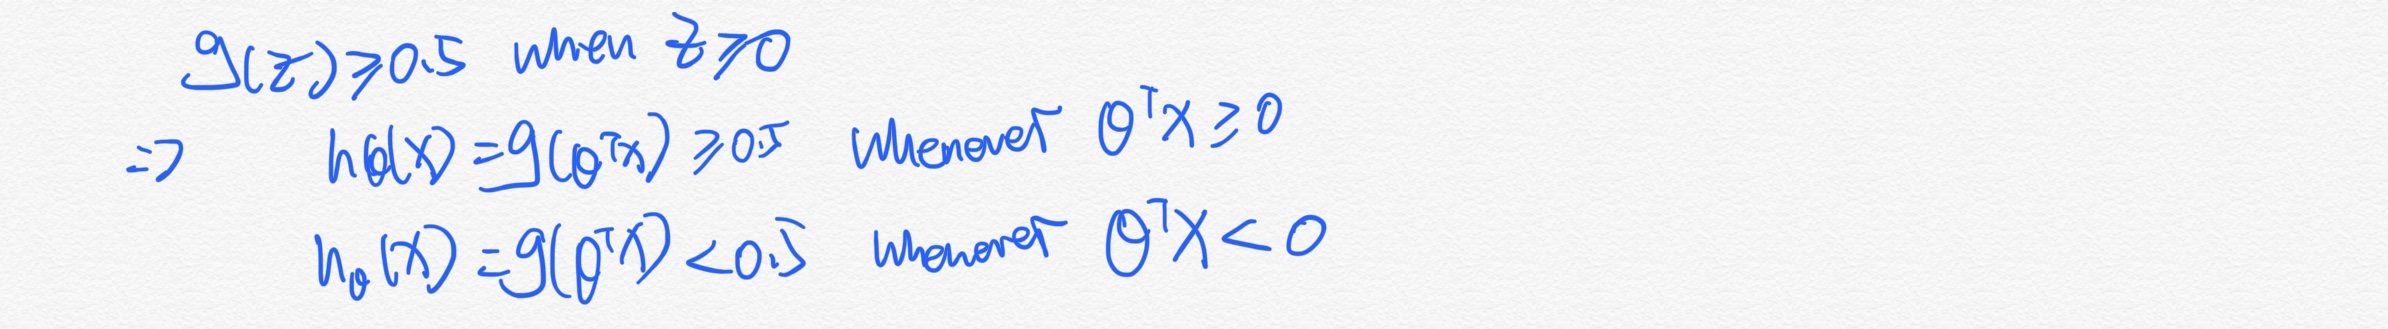 g(z)≥0.5 when z≥0
=> hθ(x)=g(θᵀx)≥0.5 whenever θᵀx≥0
hθ(x)=g(θᵀx)<0.5 whenever θᵀx<0